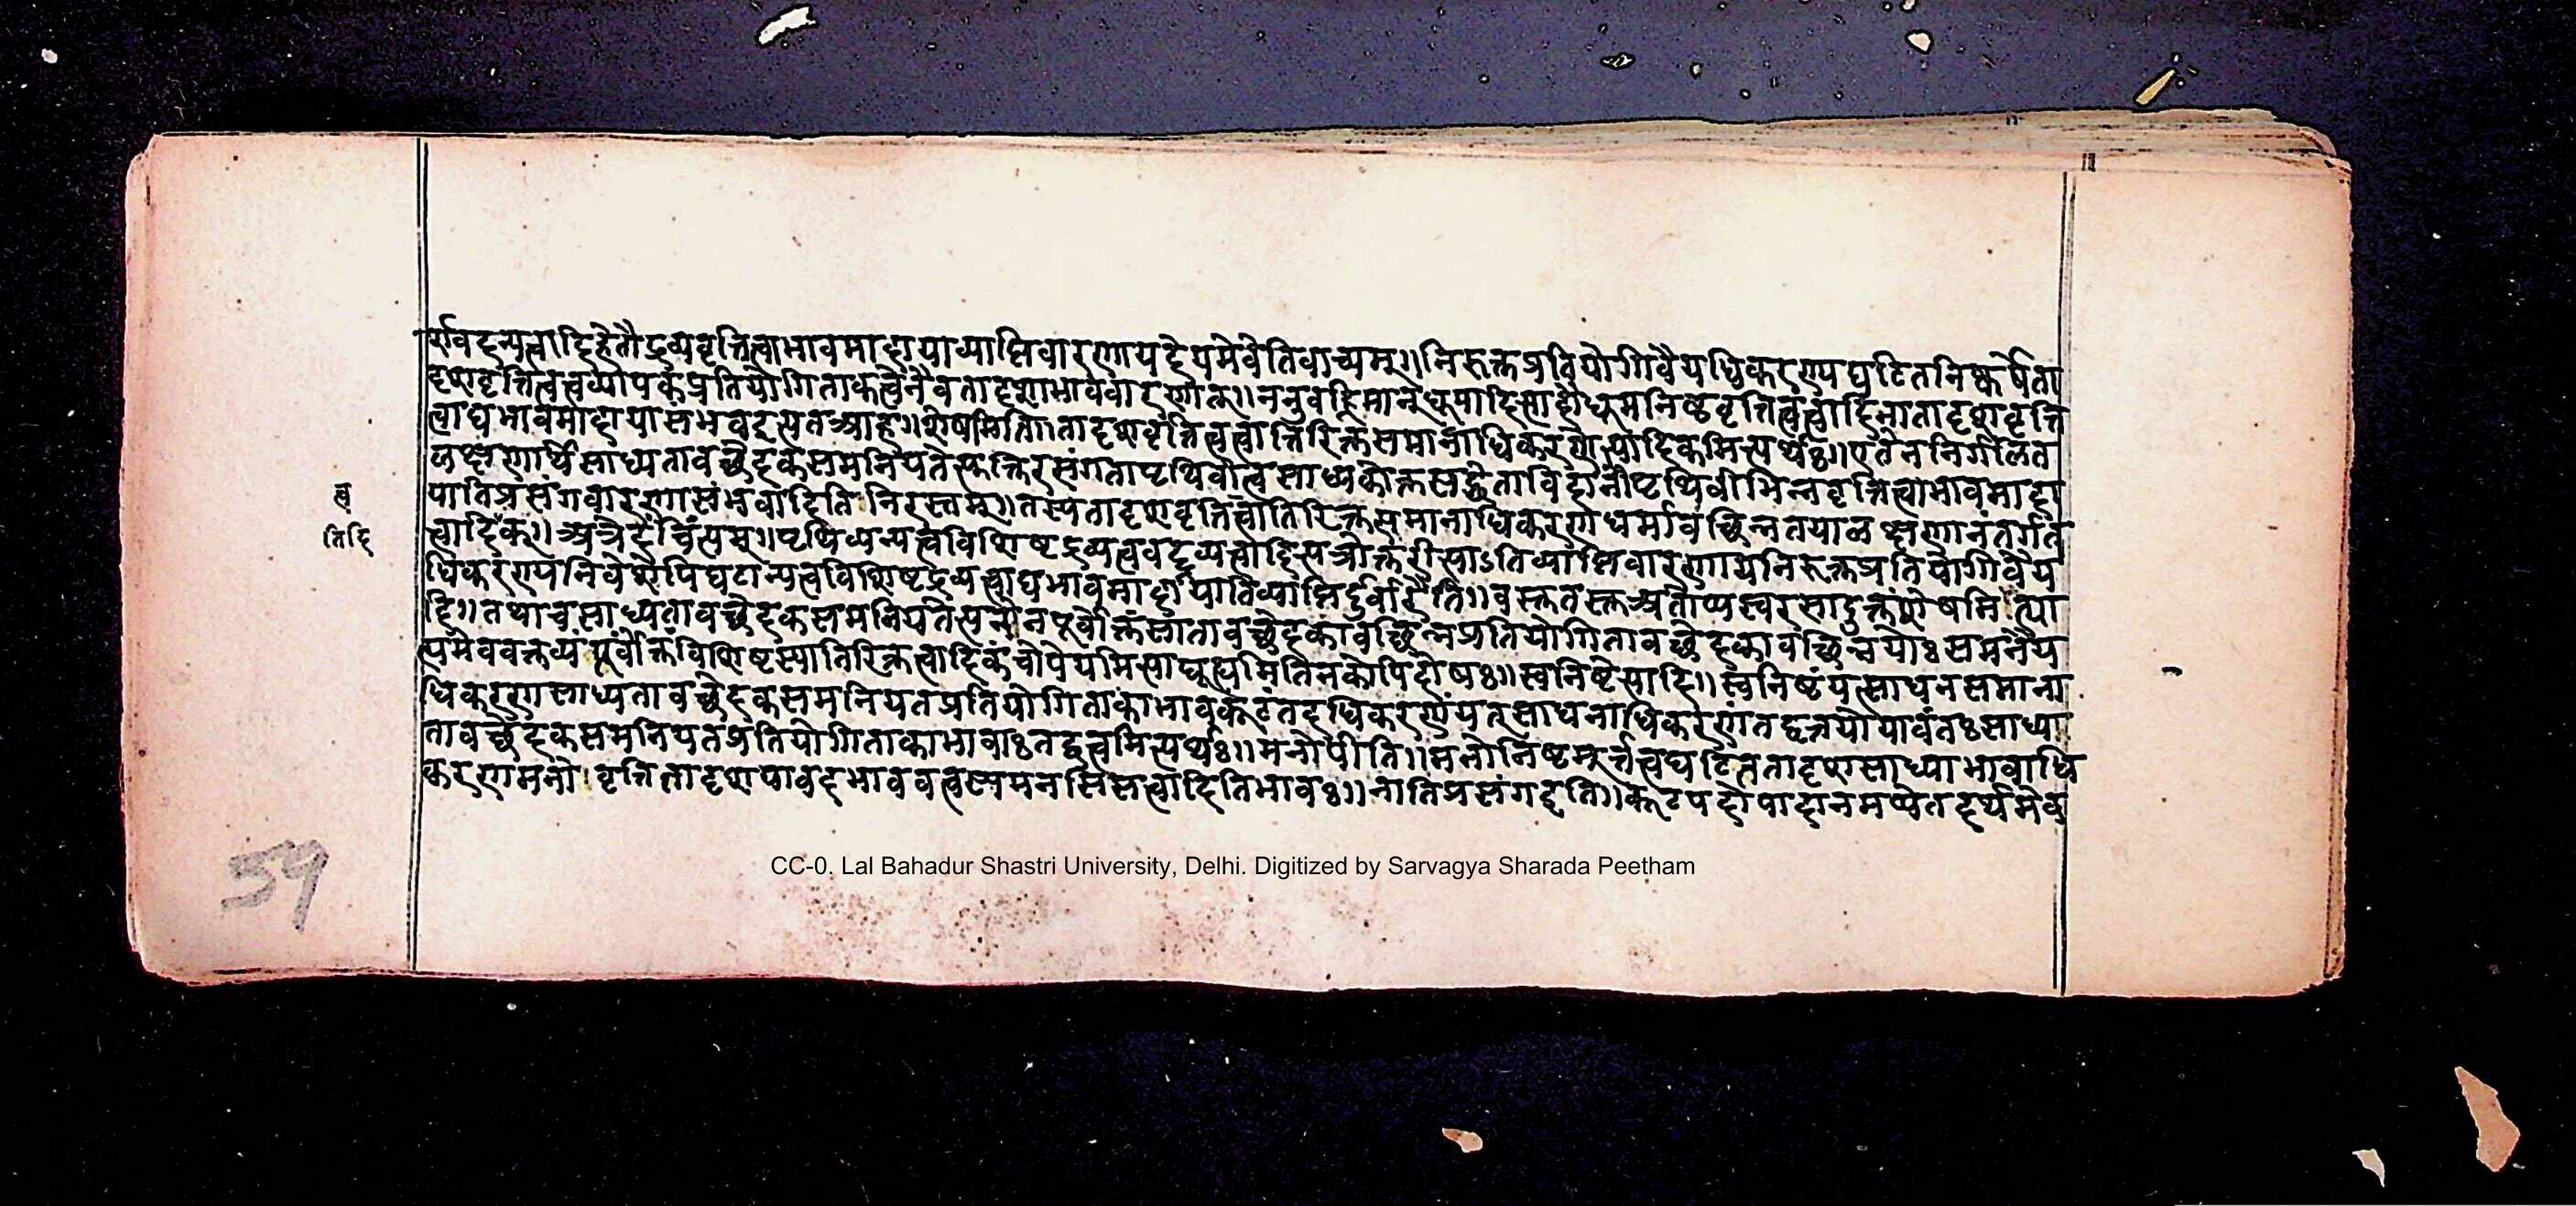 र्एावदन्यत्वादिहेतौद्रव्यवृत्तित्वाभावमादायाव्याप्तिवारणायदेयमेवेतिवाच्यम्॥निरुक्तप्रतियोगिवैयधिकरण्यघटितनिष्कर्षेता
दृशवृत्तित्वत्वव्यापकप्रतियोगिताकत्वेनैवतादृशाभाववारणात्॥ननुवह्निमान्धूमादित्यादौधूमनिष्ठवृत्तित्वत्वादिनातादृशवृत्ति
त्वाद्यभावमादायासंभवइत्यतआह॥शेषमिति॥तादृशवृत्तित्वत्वातिरिक्तसमानाधिकरणेत्यादिकमित्यर्थः॥एतेननिर्गलित
लक्षणार्थेसाध्यतावच्छेदकसमनियतेत्युक्तिरसंगतापृथिवीत्वसाध्यकोक्तसद्धेताविदानींपृथिवीभिन्नवृत्तित्वाभावमादा
यातिप्रसंगवारणासंभवादितिनिरस्तम्॥तस्यतादृशवृत्तित्वातिरिक्तसमानाधिकरणधर्मावच्छिन्नतयालक्षणानंतर्गत
त्व
त्वादिक्॥अत्रेदंचिंत्यम्॥पृथिव्यन्यत्वविशिष्टद्रव्यत्ववद्द्रव्यत्वादित्यत्रोक्तरीत्याऽतिव्याप्तिवारणायनिरुक्तप्रतियोगिवैय
तिदि
धिकरण्यनिवेशेपिघटान्यत्वविशिष्टद्रव्यत्वाद्यभावमादायातिव्याप्तिर्दुर्वारैवेति॥वस्तुतस्तुअतोप्यस्वरसादुक्तंशेषमित्या
दि॥तथाचसाध्यतावच्छेदकसमनियतेत्यनेनपूर्वोक्तंसातावच्छेदकावच्छिन्नप्रतियोगितावच्छेदकावच्छिन्नयोःसमनैय
त्यमेववक्तव्यंपूर्वोक्तविशिष्टस्यातिरिक्तत्वादिकंचोपेयमित्याद्यूह्यमितिनकोपिदोषः॥स्वनिष्टेत्यादि॥स्वनिष्टंयत्साधनसमाना
धिकरणसाध्यतावच्छेदकसमनियतप्रतियोगिताकाभावकूटंतदधिकरणंयत्साधनाधिकरणंतद्वृत्तयोयावंतःसाध्या
तावच्छेदकसमनियतप्रतियोगिताकाभावाःतद्वत्त्वमित्यर्थः॥मनोपीति॥मनोनिष्टमूर्त्तत्वघटितंतादृशसाध्याभावाधि
करणमनोवृत्तितादृशयावदभाववत्त्वस्यमनसिसत्वादितिभावः॥नातिप्रसंगइति॥कूटपदोपादानमप्येतदर्थमेव
59
CC-0. Lal Bahadur Shastri University, Delhi. Digitized by Sarvagya Sharada Peetham